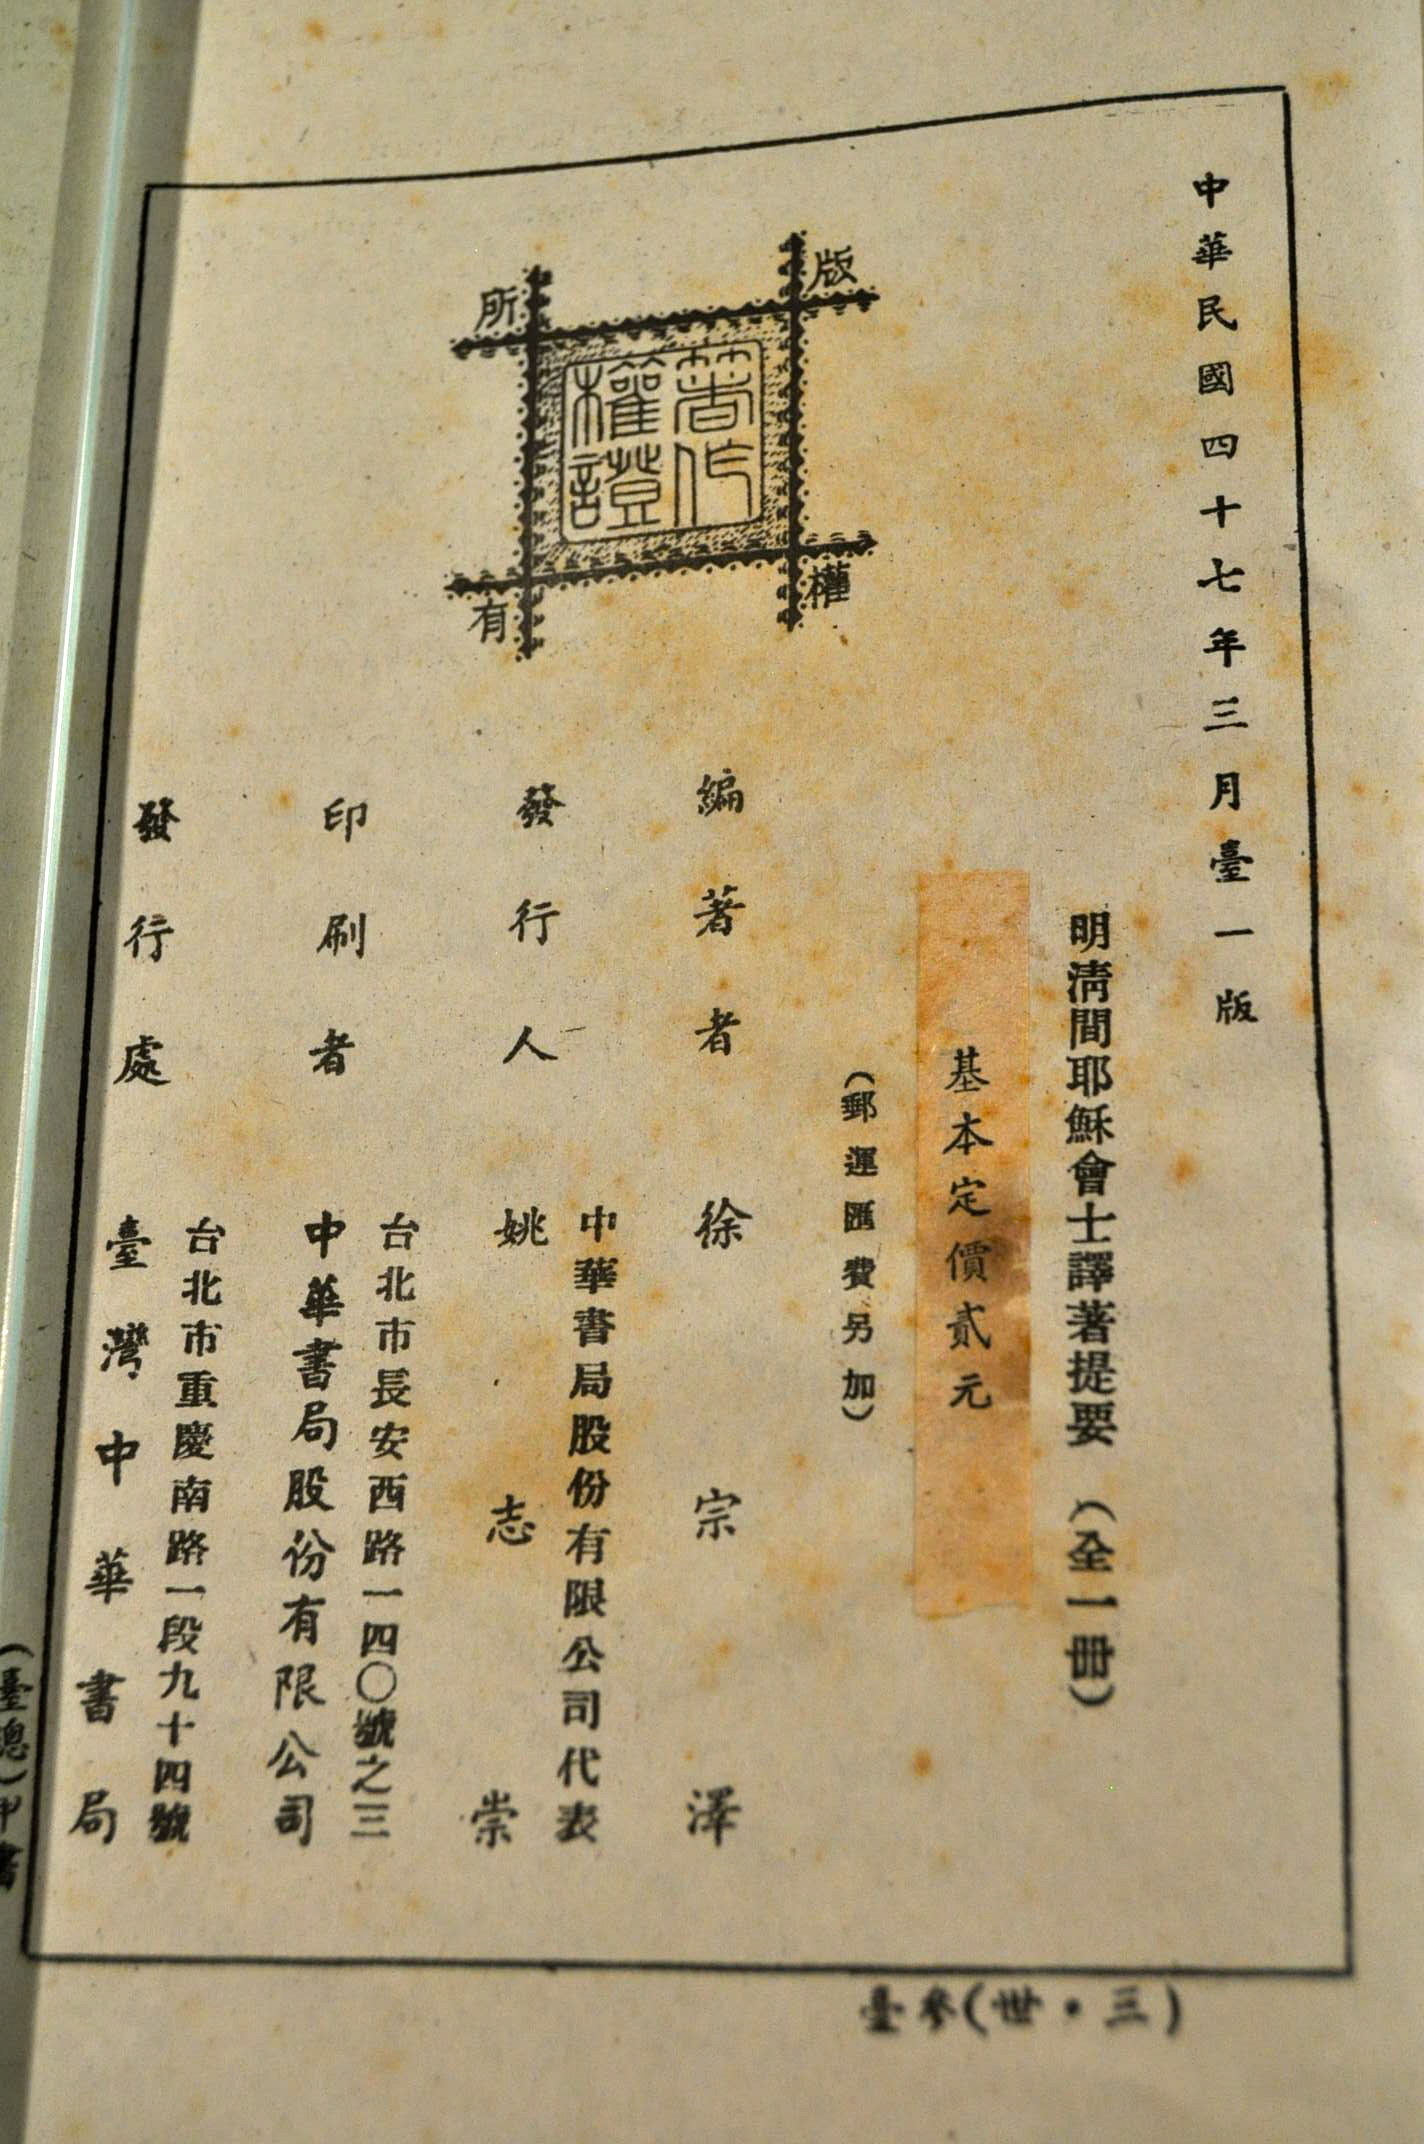 中華民國四十七年三月臺一版
明淸間耶穌會士譯著提要（全一冊）
基本定價貳元
（郵運匯費另加）
版權所有
著作權證
編著者 徐宗澤
發行人 中華書局股份有限公司代表
姚志崇
印刷者 台北市長安西路一四〇號之三
中華書局股份有限公司
發行處 台北市重慶南路一段九十四號
臺灣中華書局
臺參(世・三)
（臺總）